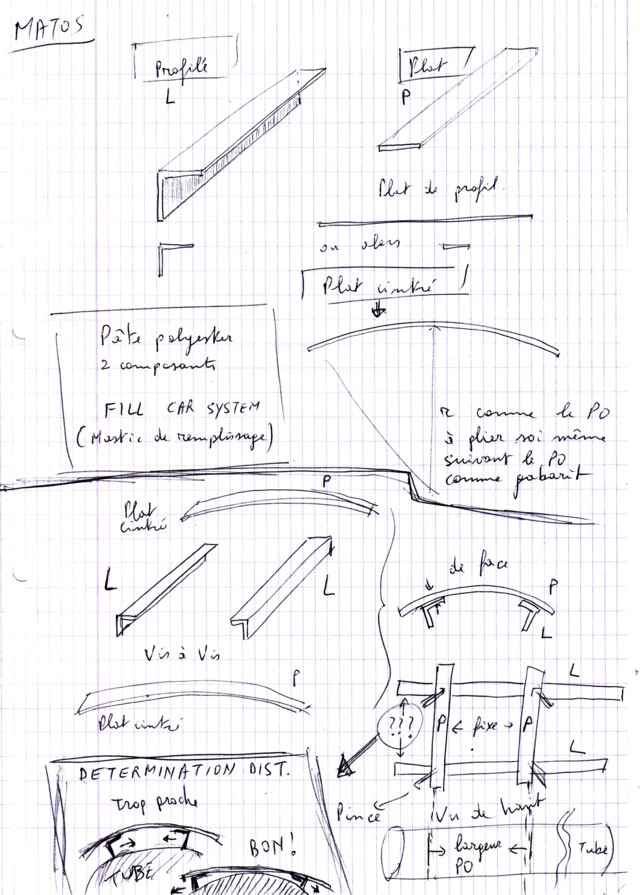 MATOS
Profilé
L
Plat
P
Plat de profil.
ou alors
Plat cintré
Pâte polyester
2 composants
FILL CAR SYSTEM
(Mastic de remplissage)
r comme le PO
à plier soi même
suivant le PO
comme gabarit
P
Plat
cintré
L
L
Vis à Vis
P
Plat cintré
de face
P
L
L
???
P ← fixe → P
L
Pince
Vu de haut
← largeur →
PO
Tube
DETERMINATION DIST.
Trop proche
TUBE
BON!